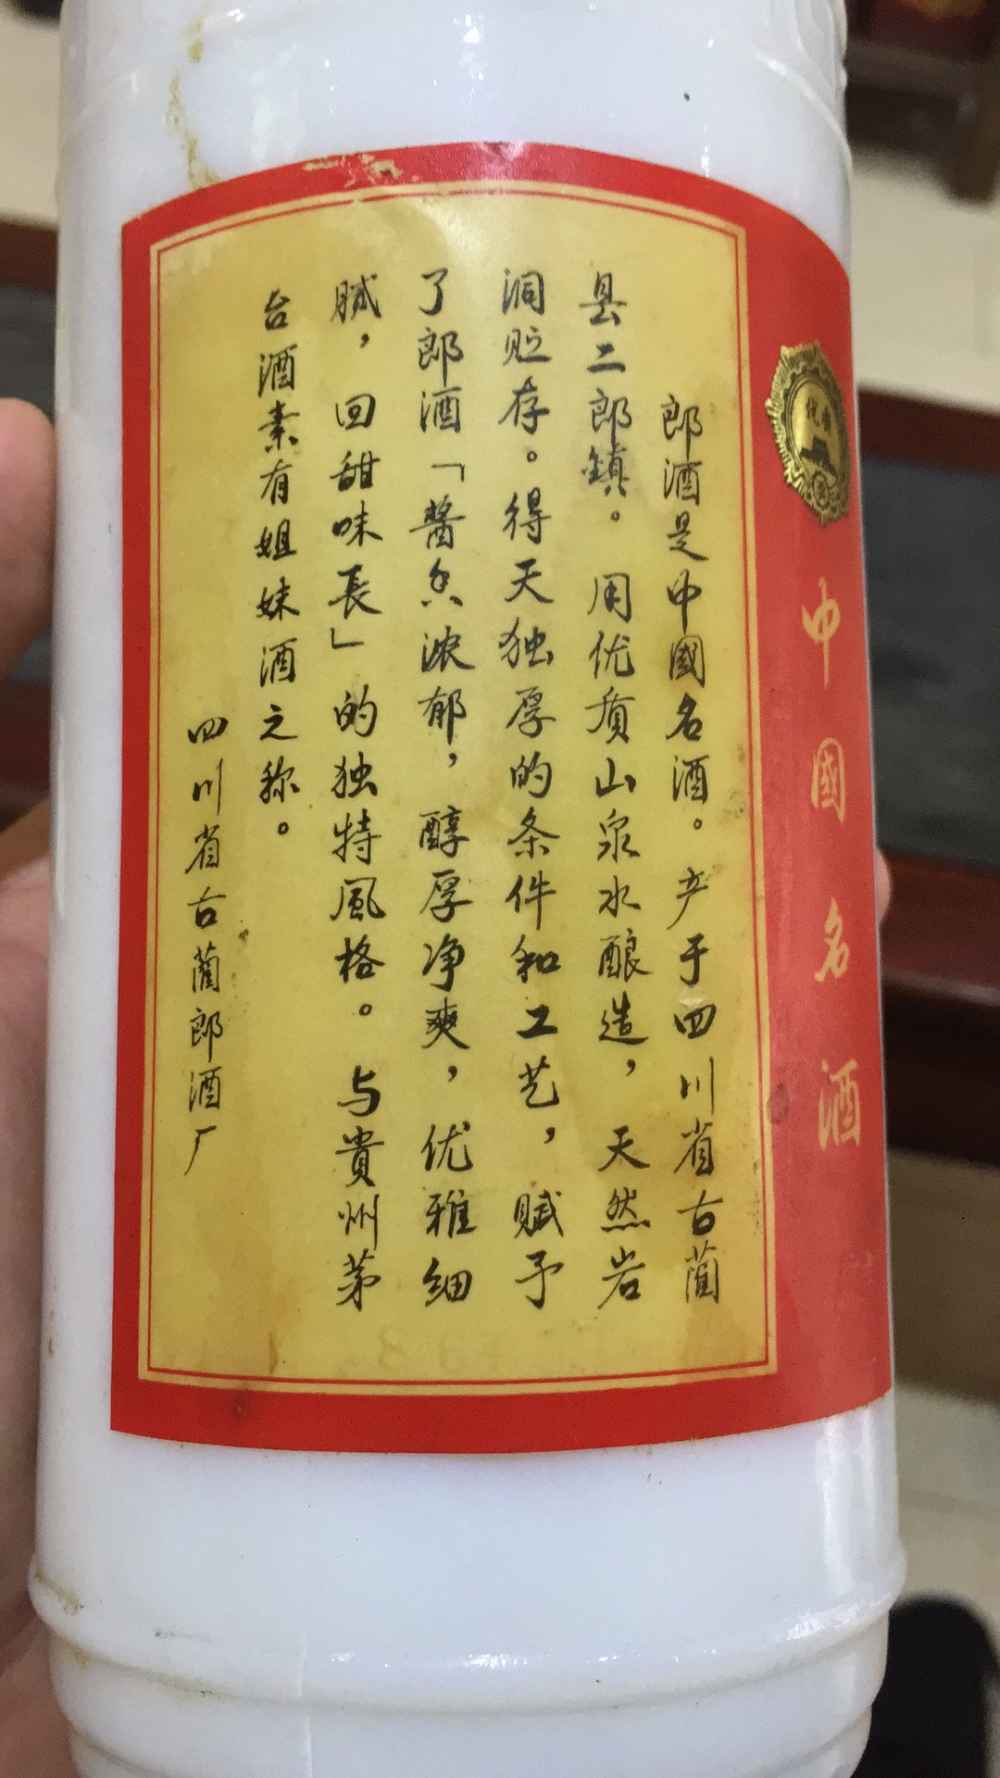 中國名酒
郎酒是中國名酒。产于四川省古藺
县二郎鎮。用优质山泉水酿造，天然岩
洞贮存。得天独厚的条件和工艺，赋予
了郎酒「醬香浓郁，醇厚净爽，优雅细
腻，回甜味長」的独特風格。与貴州茅
台酒素有姐妹酒之称。
四川省古藺郎酒厂